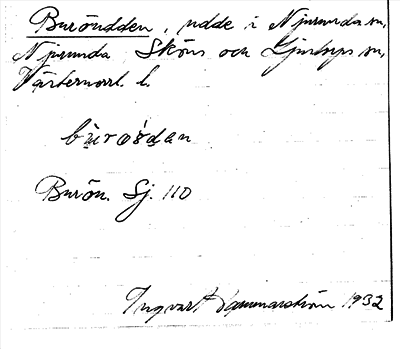 Buröudden, udde i Njurunda sn,
Njurunda, Sköns och Ljustorps sn,
Västernorrl. l.
Burön. Sj. 110
Ingvar Hammarström 1932